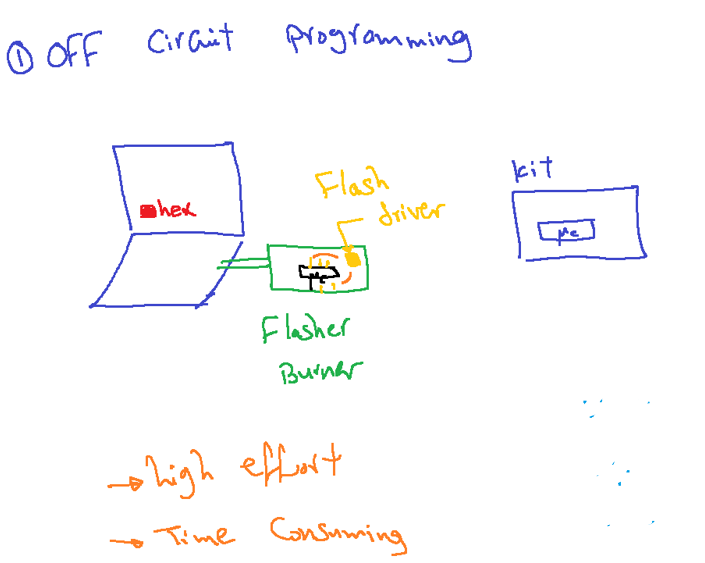 ① OFF Circuit Programming
kit
Flash
driver
hex
μc
μc
Flasher
Burner
→ high effort
→ Time Consuming